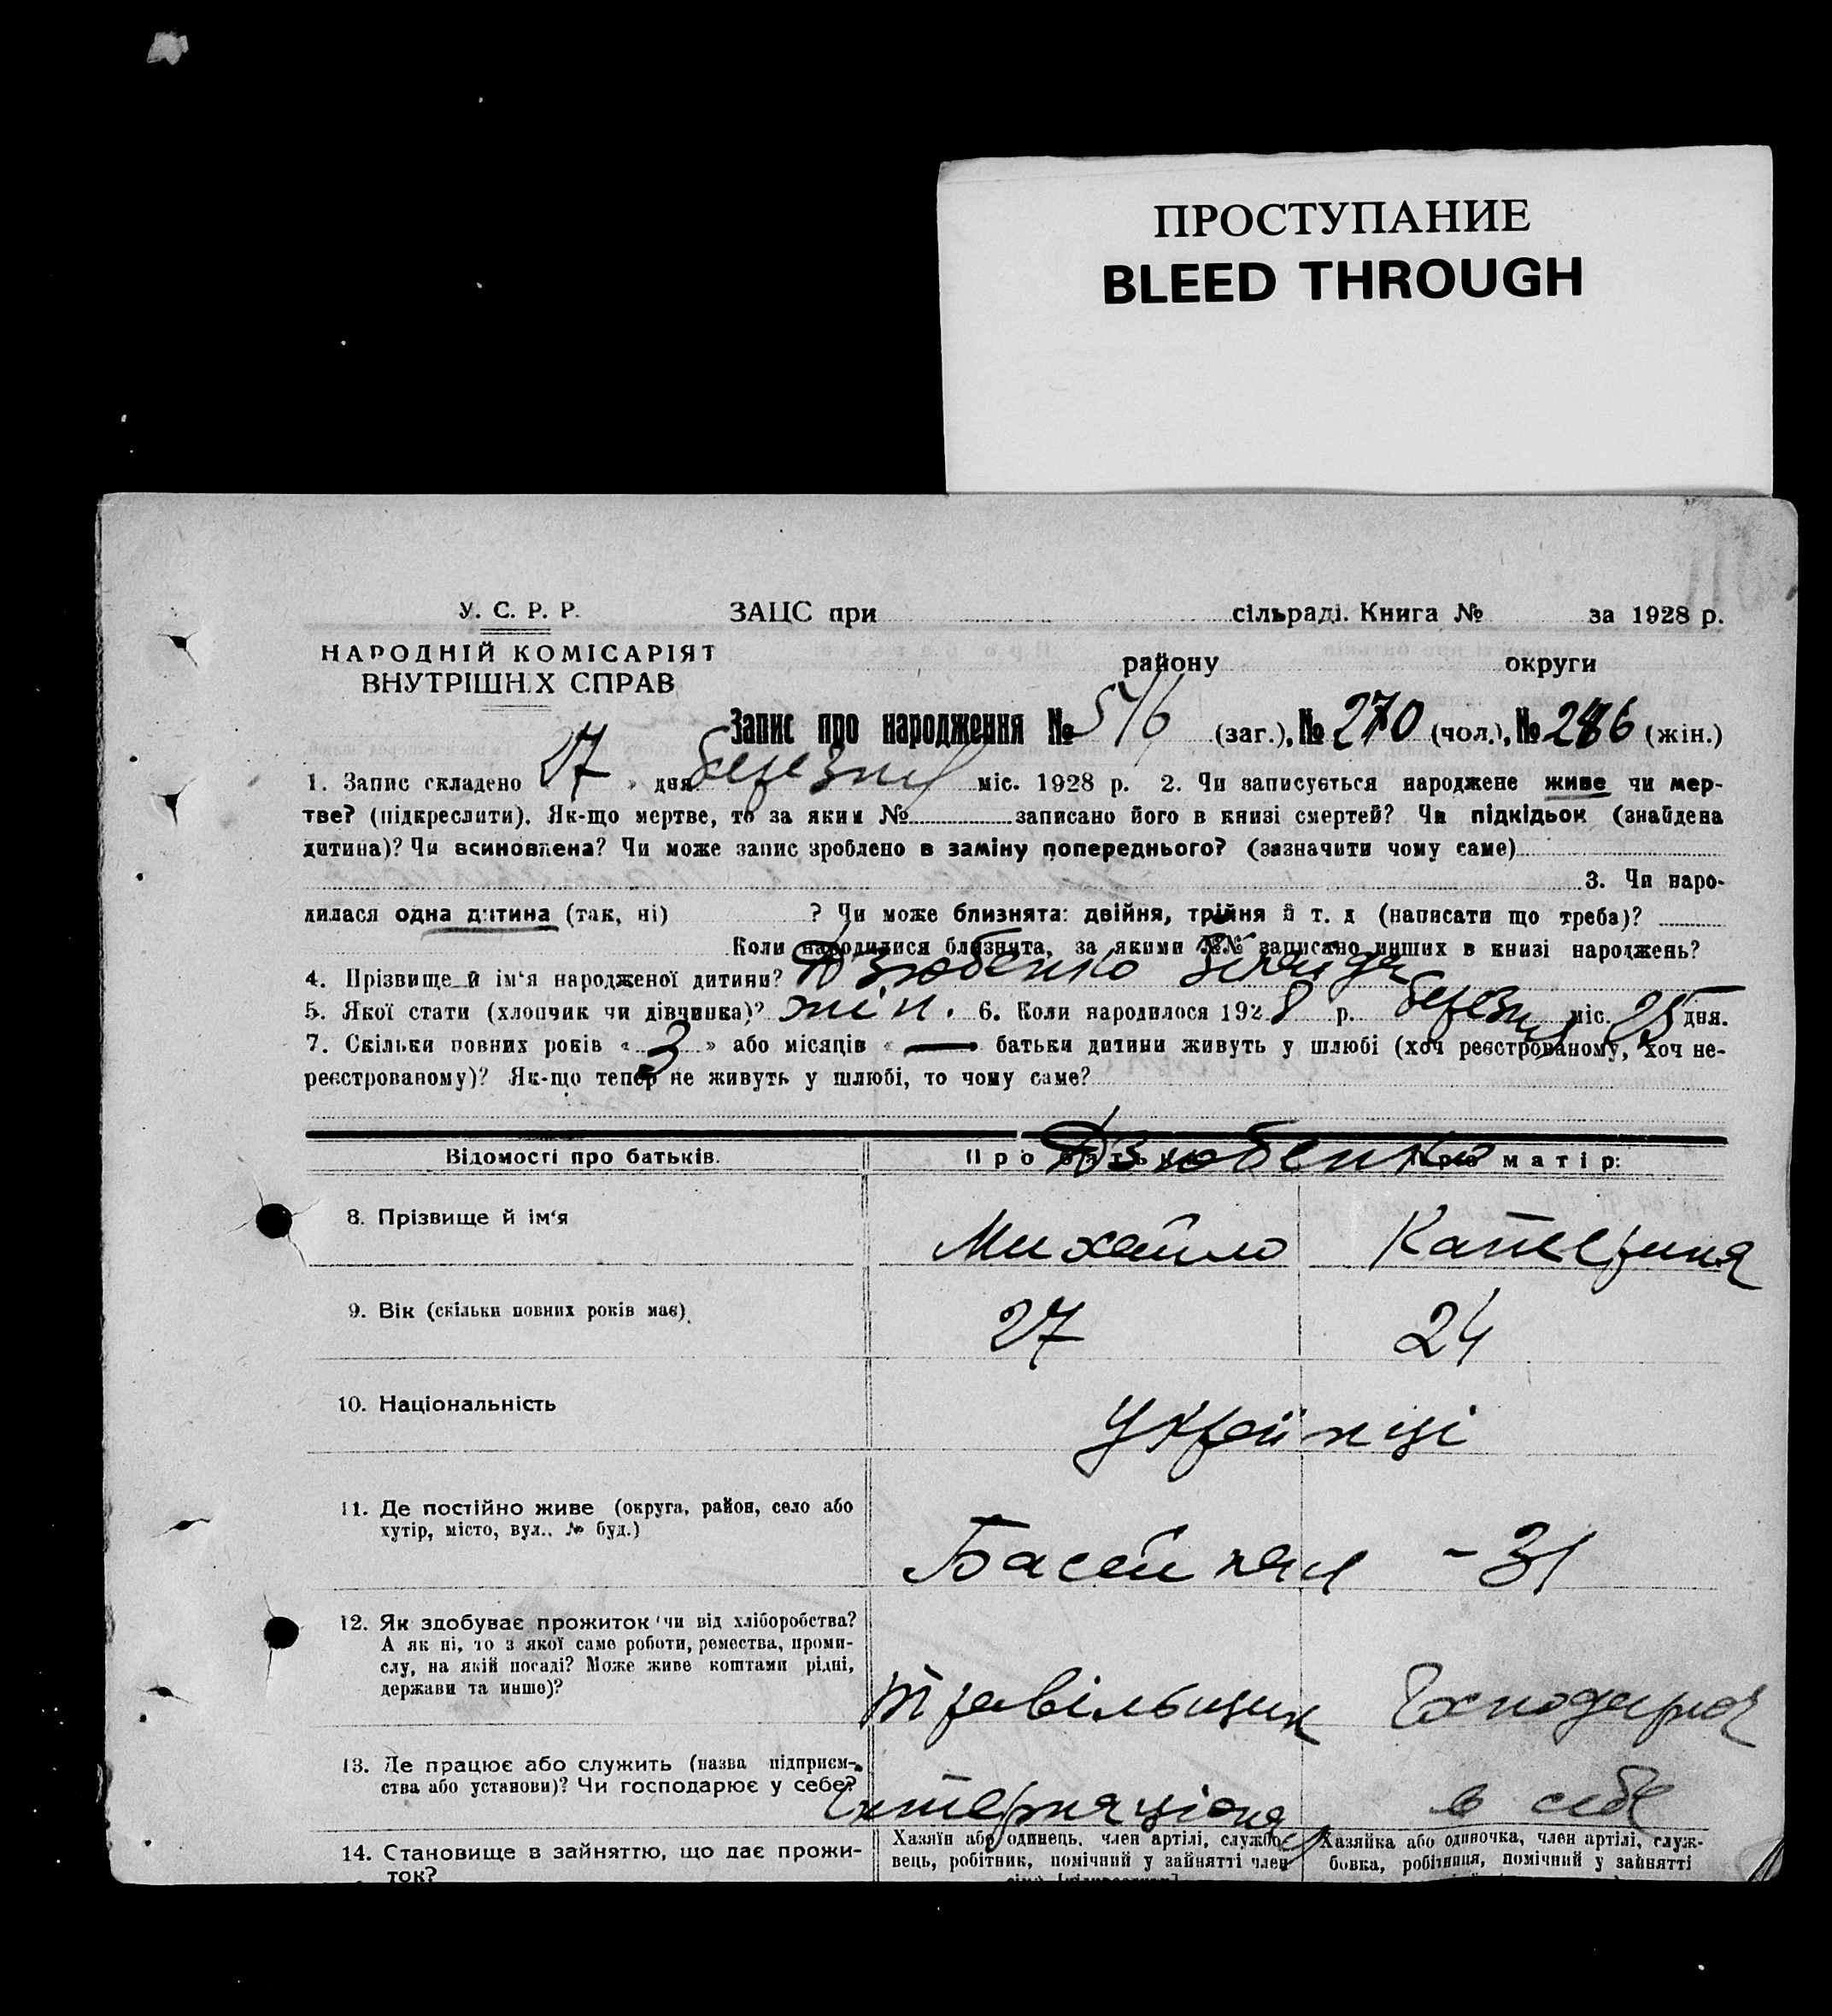 ПРОСТУПАНИЕ
BLEED THROUGH
У. С. Р. Р.
ЗАЦС при сільраді. Книга № за 1928 р.
НАРОДНІЙ КОМІСАРІЯТ
ВНУТРІШНІХ СПРАВ
району округи
Запис про народження № 516 (заг.), № 270 (чол.), № 246 (жін.)
1. Запис складено « 27 » дня березня міс. 1928 р. 2. Чи записується народжене живе чи мер-
тве? (підкреслити). Як-що мертве, то за яким № записано його в книзі смертей? Чи підкідьок (знайдена
дитина)? Чи всиновлена? Чи може запис зроблено в заміну попереднього? (зазначити чому саме)
3. Чи наро-
дилася одна дитина (так, ні) ? Чи може близнята: двійня, трійня й т. д (написати що треба)?
Коли народилися близнята, за якими №№ записано инших в книзі народжень?
4. Прізвище й ім'я народженої дитини? Дзюбенко Зінаїда
5. Якої стати (хлопчик чи дівчинка)? жін. 6. Коли народилося 1928 р. березня міс. 25 дня.
7. Скільки повних років « 3 » або місяців « — » батьки дитини живуть у шлюбі (хоч реєстрованому, хоч не-
реєстрованому)? Як-що тепер не живуть у шлюбі, то чому саме?
Відомості про батьків. Про батька Про матір:
Дзюбенко
8. Прізвище й ім'я Михайло Катерина
9. Вік (скільки повних років має). 27 24
10. Національність Українці
11. Де постійно живе (округа, район, село або
хутір, місто, вул., № буд.)
Басейная - 31
12. Як здобуває прожиток чи від хліборобства?
А як ні, то з якої саме роботи, ремества, проми-
слу, на якій посаді? Може живе коштами рідні,
держави та инше)?
травільщик Господарює
13. Де працює або служить (назва підприєм-
ства або установи)? Чи господарює у себе?
в себе
14. Становище в зайняттю, що дає прожи-
ток?
Хазяїн або одинець, член артілі, службо-
вець, робітник, помічний у зайнятті член
Хазяйка або одиночка, член артілі, служ-
бовка, робітниця, помічний у зайнятті